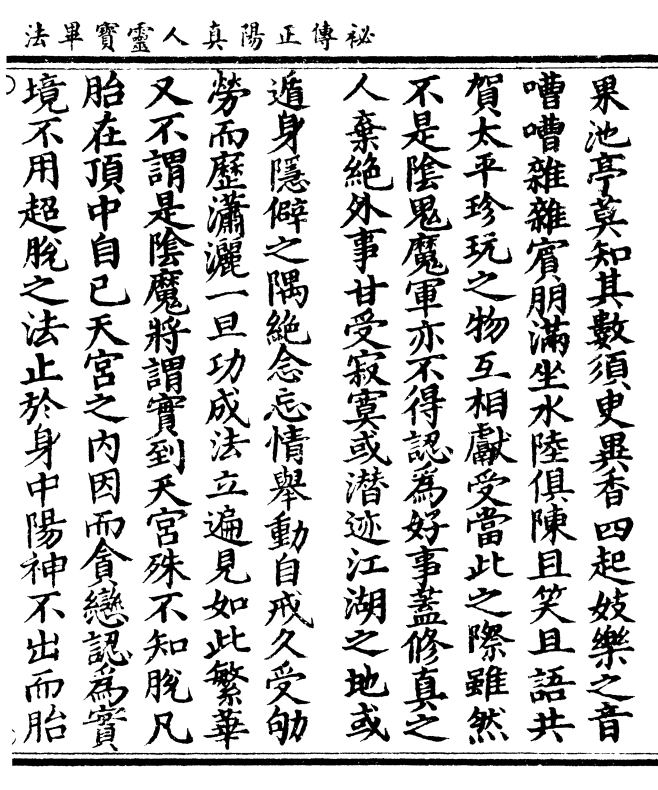 祕傳正陽真人靈寶畢法
果池亭莫知其數須叟異香四起妓樂之音
嘈嘈雜雜賓朋滿坐水陸俱陳且笑且語共
賀太平珍玩之物互相獻受當此之際雖然
不是陰鬼魔軍亦不得認爲好事蓋修真之
人棄絕外事甘受寂寞或潛迹江湖之地或
遁身隱僻之隅絕念忘情舉動自戒久受劬
勞而歷瀟灑一旦功成法立遍見如此繁華
又不謂是陰魔將謂實到天宮殊不知脫凡
胎在頂中自己天宮之內因而貪戀認爲實
境不用超脫之法止於身中陽神不出而胎